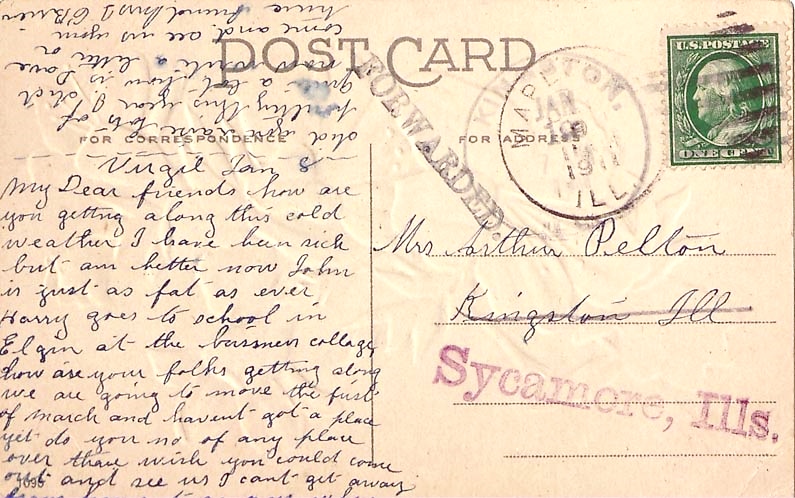 POST CARD
FOR CORRESPONDENCE
FOR ADDRESS
U.S. POSTAGE
ONE CENT
MAPLETON,
JAN
9
1911
ILL.
FORWARDED.
Virgil Jan 8
My Dear friends how are
you getting along this cold
weather I have ben sick
but am better now John
is just as fat as ever
Harry goes to school in
Elgin at the bussness collage
how are your folks getting along
we are going to move the first
of march and havent got a place
yet do you no of any place
over thare wish you could come
out and see us I cant get away
did you raise lots of
poultry this year I did
quite a lot how is Dave
now write a letter or
come and see us again
your friend Mrs J OBrien
Mrs Arthur Pelton
Kingston Ill
Sycamore, Ills.